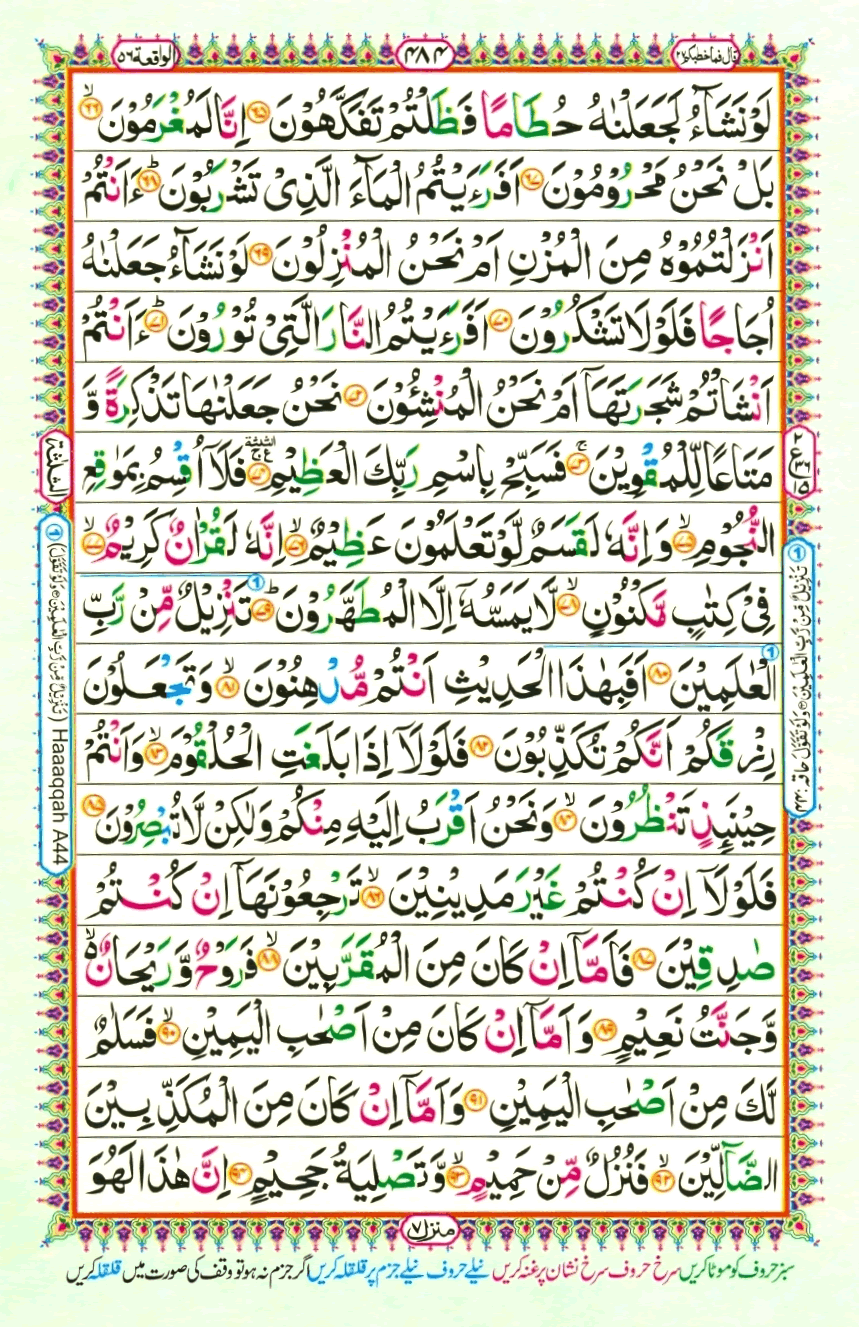 قال فما خطبکم ۲۷
۴۸۴
الواقعة ۵۶
لَوۡ نَشَآءُ لَجَعَلۡنٰهُ حُطَامًا فَظَلۡتُمۡ تَفَكَّهُوۡنَ ۶۵ اِنَّا لَمُغۡرَمُوۡنَۙ ۶۶
بَلۡ نَحۡنُ مَحۡرُوۡمُوۡنَ ۶۷ اَفَرَءَيۡتُمُ الۡمَآءَ الَّذِىۡ تَشۡرَبُوۡنَؕ ۶۸ ءَاَنۡتُمۡ
اَنۡزَلۡتُمُوۡهُ مِنَ الۡمُزۡنِ اَمۡ نَحۡنُ الۡمُنۡزِلُوۡنَ ۶۹ لَوۡ نَشَآءُ جَعَلۡنٰهُ
اُجَاجًا فَلَوۡلَا تَشۡكُرُوۡنَ ۷۰ اَفَرَءَيۡتُمُ النَّارَ الَّتِىۡ تُوۡرُوۡنَؕ ۷۱ ءَاَنۡتُمۡ
اَنۡشَاۡتُمۡ شَجَرَتَهَاۤ اَمۡ نَحۡنُ الۡمُنۡشِئُوۡنَ ۷۲ نَحۡنُ جَعَلۡنٰهَا تَذۡكِرَةً وَّ
مَتَاعًا لِّلۡمُقۡوِيۡنَۚ ۷۳ فَسَبِّحۡ بِاسۡمِ رَبِّكَ الۡعَظِيۡمِ ۷۴ فَلَاۤ اُقۡسِمُ بِمَوٰقِعِ
النُّجُوۡمِۙ ۷۵ وَاِنَّهٗ لَقَسَمٌ لَّوۡ تَعۡلَمُوۡنَ عَظِيۡمٌۙ ۷۶ اِنَّهٗ لَقُرۡاٰنٌ كَرِيۡمٌۙ ۷۷
فِىۡ كِتٰبٍ مَّكۡنُوۡنٍۙ ۷۸ لَّا يَمَسُّهٗۤ اِلَّا الۡمُطَهَّرُوۡنَؕ ۷۹ تَنۡزِيۡلٌ مِّنۡ رَّبِّ
الۡعٰلَمِيۡنَ ۸۰ اَفَبِهٰذَا الۡحَدِيۡثِ اَنۡتُمۡ مُّدۡهِنُوۡنَۙ ۸۱ وَتَجۡعَلُوۡنَ
رِزۡقَكُمۡ اَنَّكُمۡ تُكَذِّبُوۡنَ ۸۲ فَلَوۡلَاۤ اِذَا بَلَغَتِ الۡحُلۡقُوۡمَۙ ۸۳ وَاَنۡتُمۡ
حِيۡنَئِذٍ تَنۡظُرُوۡنَۙ ۸۴ وَنَحۡنُ اَقۡرَبُ اِلَيۡهِ مِنۡكُمۡ وَلٰكِنۡ لَّا تُبۡصِرُوۡنَ ۸۵
فَلَوۡلَاۤ اِنۡ كُنۡتُمۡ غَيۡرَ مَدِيۡنِيۡنَۙ ۸۶ تَرۡجِعُوۡنَهَاۤ اِنۡ كُنۡتُمۡ
صٰدِقِيۡنَ ۸۷ فَاَمَّاۤ اِنۡ كَانَ مِنَ الۡمُقَرَّبِيۡنَۙ ۸۸ فَرَوۡحٌ وَّرَيۡحَانٌ ۙ۬
وَّجَنَّتُ نَعِيۡمٍ ۸۹ وَاَمَّاۤ اِنۡ كَانَ مِنۡ اَصۡحٰبِ الۡيَمِيۡنِۙ ۹۰ فَسَلٰمٌ
لَّكَ مِنۡ اَصۡحٰبِ الۡيَمِيۡنِ ۹۱ وَاَمَّاۤ اِنۡ كَانَ مِنَ الۡمُكَذِّبِيۡنَ
الضَّآلِّيۡنَ ۹۲ فَنُزُلٌ مِّنۡ حَمِيۡمٍۙ ۹۳ وَّتَصۡلِيَةُ جَحِيۡمٍ ۹۴ اِنَّ هٰذَا لَهُوَ
منزل ۷
الثلثة
۲ ع ۳۶ ۱۵
① تَنۡزِيۡلٌ مِّنۡ رَّبِّ الۡعٰلَمِيۡنَ ۞ وَلَوۡ تَقَوَّلَ حاقہ: ۴۴
① (تَنۡزِيۡلٌ مِّنۡ رَّبِّ الۡعٰلَمِيۡنَ ۞ وَلَوۡ تَقَوَّلَ) Haaaqqah A44
سبز حروف کو موٹا کریں سرخ حروف سرخ نشان پر غنہ کریں نیلے حروف نیلے جزم پر قلقلہ کریں اگر جزم نہ ہو تو وقف کی صورت میں قلقلہ کریں